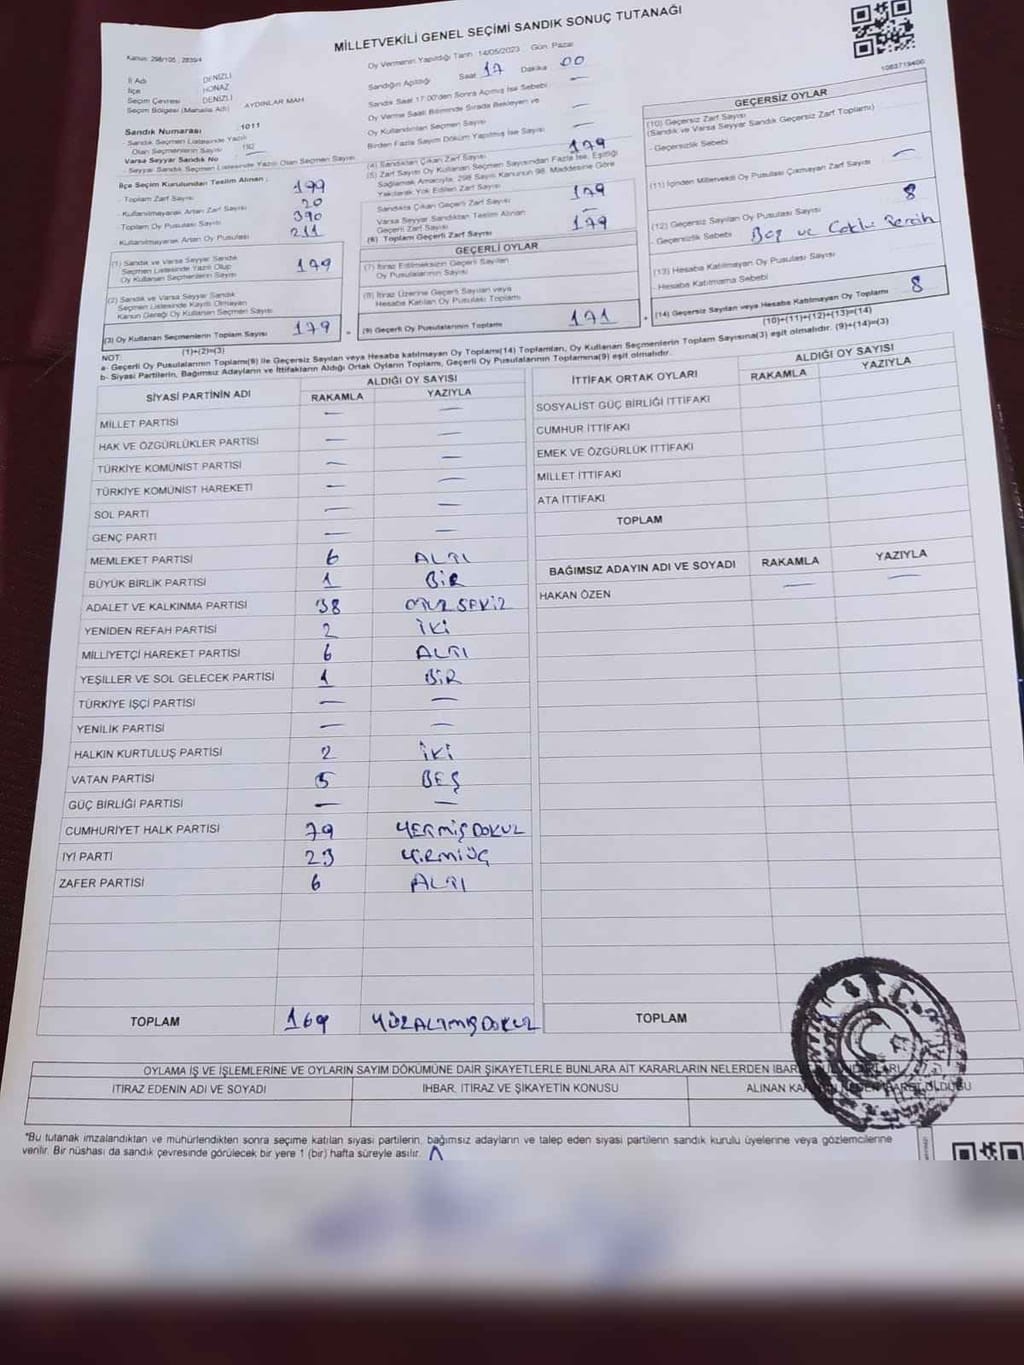 MİLLETVEKİLİ GENEL SEÇİMİ SANDIK SONUÇ TUTANAĞI
Kanun: 298/105, 2839/4
Oy Vermenin Yapıldığı Tarih: 14/05/2023 Gün: Pazar
İl Adı DENİZLİ
İlçe HONAZ
Seçim Çevresi DENİZLİ
Seçim Bölgesi (Mahalle Adı) AYDINLAR MAH
Sandık Numarası :1011
Sandık Seçmen Listesinde Yazılı
Olan Seçmenlerin Sayısı
Varsa Seyyar Sandık No
- Seyyar Sandık Seçmen Listesinde Yazılı Olan Seçmen Sayısı
İlçe Seçim Kurulundan Teslim Alınan :
- Toplam Zarf Sayısı 199
- Kullanılmayarak Artan Zarf Sayısı 20
- Toplam Oy Pusulası Sayısı 390
- Kullanılmayarak Artan Oy Pusulası 211
(1) Sandık ve Varsa Seyyar Sandık
Seçmen Listesinde Yazılı Olup
Oy Kullanan Seçmenlerin Sayısı 179
(2) Sandık ve Varsa Seyyar Sandık
Seçmen Listesinde Kayıtlı Olmayan
Kanun Gereği Oy Kullanan Seçmenlerin Sayısı
(3) Oy Kullanan Seçmenlerin Toplam Sayısı 179
(1)+(2)=(3)
Sandığın Açıldığı Saat 17 Dakika 00
Sandık Saat 17:00'den Sonra Açılmış İse Sebebi —
Oy Verme Saati Bitiminde Sırada Bekleyen ve
Oy Kullandırılan Seçmen Sayısı —
Birden Fazla Sayım Döküm Yapılmış İse Sayısı —
(4) Sandıktan Çıkan Zarf Sayısı 179
(5) Zarf Sayısı Oy Kullanan Seçmen Sayısından Fazla İse, Eşitliği
Sağlamak Amacıyla, 298 Sayılı Kanunun 98. Maddesine Göre
Yakılarak Yok Edilen Zarf Sayısı
Sandıkta Çıkan Geçerli Zarf Sayısı 179
Varsa Seyyar Sandıktan Teslim Alınan
Geçerli Zarf Sayısı —
(6) Toplam Geçerli Zarf Sayısı 179
GEÇERLİ OYLAR
(7) İtiraz Edilmeksizin Geçerli Sayılan
Oy Pusulalarının Sayısı
(8) İtiraz Üzerine Geçerli Sayılan veya
Hesaba Katılan Oy Pusulası Toplamı
(9) Geçerli Oy Pusulalarının Toplamı 171
1083719400
GEÇERSİZ OYLAR
(10) Geçersiz Zarf Sayısı
(Sandık ve Varsa Seyyar Sandık Geçersiz Zarf Toplamı)
- Geçersizlik Sebebi
(11) İçinden Milletvekili Oy Pusulası Çıkmayan Zarf Sayısı —
(12) Geçersiz Sayılan Oy Pusulası Sayısı 8
- Geçersizlik Sebebi Boş ve Çoklu Tercih
(13) Hesaba Katılmayan Oy Pusulası Sayısı
- Hesaba Katılmama Sebebi
(14) Geçersiz Sayılan veya Hesaba Katılmayan Oy Toplamı 8
(10)+(11)+(12)+(13)=(14)
NOT:
a- Geçerli Oy Pusulalarının Toplamı(9) ile Geçersiz Sayılan veya Hesaba katılmayan Oy Toplamı(14) Toplamları, Oy Kullanan Seçmenlerin Toplam Sayısına(3) eşit olmalıdır. (9)+(14)=(3)
b- Siyasi Partilerin, Bağımsız Adayların ve İttifakların Aldığı Ortak Oyların Toplamı, Geçerli Oy Pusulalarının Toplamına(9) eşit olmalıdır.
SİYASİ PARTİNİN ADI ALDIĞI OY SAYISI
RAKAMLA YAZIYLA
MİLLET PARTİSİ — —
HAK VE ÖZGÜRLÜKLER PARTİSİ — —
TÜRKİYE KOMÜNİST PARTİSİ — —
TÜRKİYE KOMÜNİST HAREKETİ — —
SOL PARTİ — —
GENÇ PARTİ — —
MEMLEKET PARTİSİ 6 ALTI
BÜYÜK BİRLİK PARTİSİ 1 BİR
ADALET VE KALKINMA PARTİSİ 38 OTUZ SEKİZ
YENİDEN REFAH PARTİSİ 2 İKİ
MİLLİYETÇİ HAREKET PARTİSİ 6 ALTI
YEŞİLLER VE SOL GELECEK PARTİSİ 1 BİR
TÜRKİYE İŞÇİ PARTİSİ — —
YENİLİK PARTİSİ — —
HALKIN KURTULUŞ PARTİSİ 2 İKİ
VATAN PARTİSİ 5 BEŞ
GÜÇ BİRLİĞİ PARTİSİ — —
CUMHURİYET HALK PARTİSİ 79 YETMİŞDOKUZ
İYİ PARTİ 23 YİRMİÜÇ
ZAFER PARTİSİ 6 ALTI
TOPLAM 169 YÜZALTMIŞDOKUZ
İTTİFAK ORTAK OYLARI ALDIĞI OY SAYISI
RAKAMLA YAZIYLA
SOSYALİST GÜÇ BİRLİĞİ İTTİFAKI
CUMHUR İTTİFAKI
EMEK VE ÖZGÜRLÜK İTTİFAKI
MİLLET İTTİFAKI
ATA İTTİFAKI
TOPLAM
BAĞIMSIZ ADAYIN ADI VE SOYADI RAKAMLA YAZIYLA
HAKAN ÖZEN — —
TOPLAM
OYLAMA İŞ VE İŞLEMLERİNE VE OYLARIN SAYIM DÖKÜMÜNE DAİR ŞİKAYETLERLE BUNLARA AİT KARARLARIN NELERDEN İBARET OLDUKLARI
İTİRAZ EDENİN ADI VE SOYADI İHBAR, İTİRAZ VE ŞİKAYETİN KONUSU ALINAN KARARIN NEDEN İBARET OLDUĞU
*Bu tutanak imzalandıktan ve mühürlendikten sonra seçime katılan siyasi partilerin, bağımsız adayların ve talep eden siyasi partilerin sandık kurulu üyelerine veya gözlemcilerine
verilir. Bir nüshası da sandık çevresinde görülecek bir yere 1 (bir) hafta süreyle asılır.